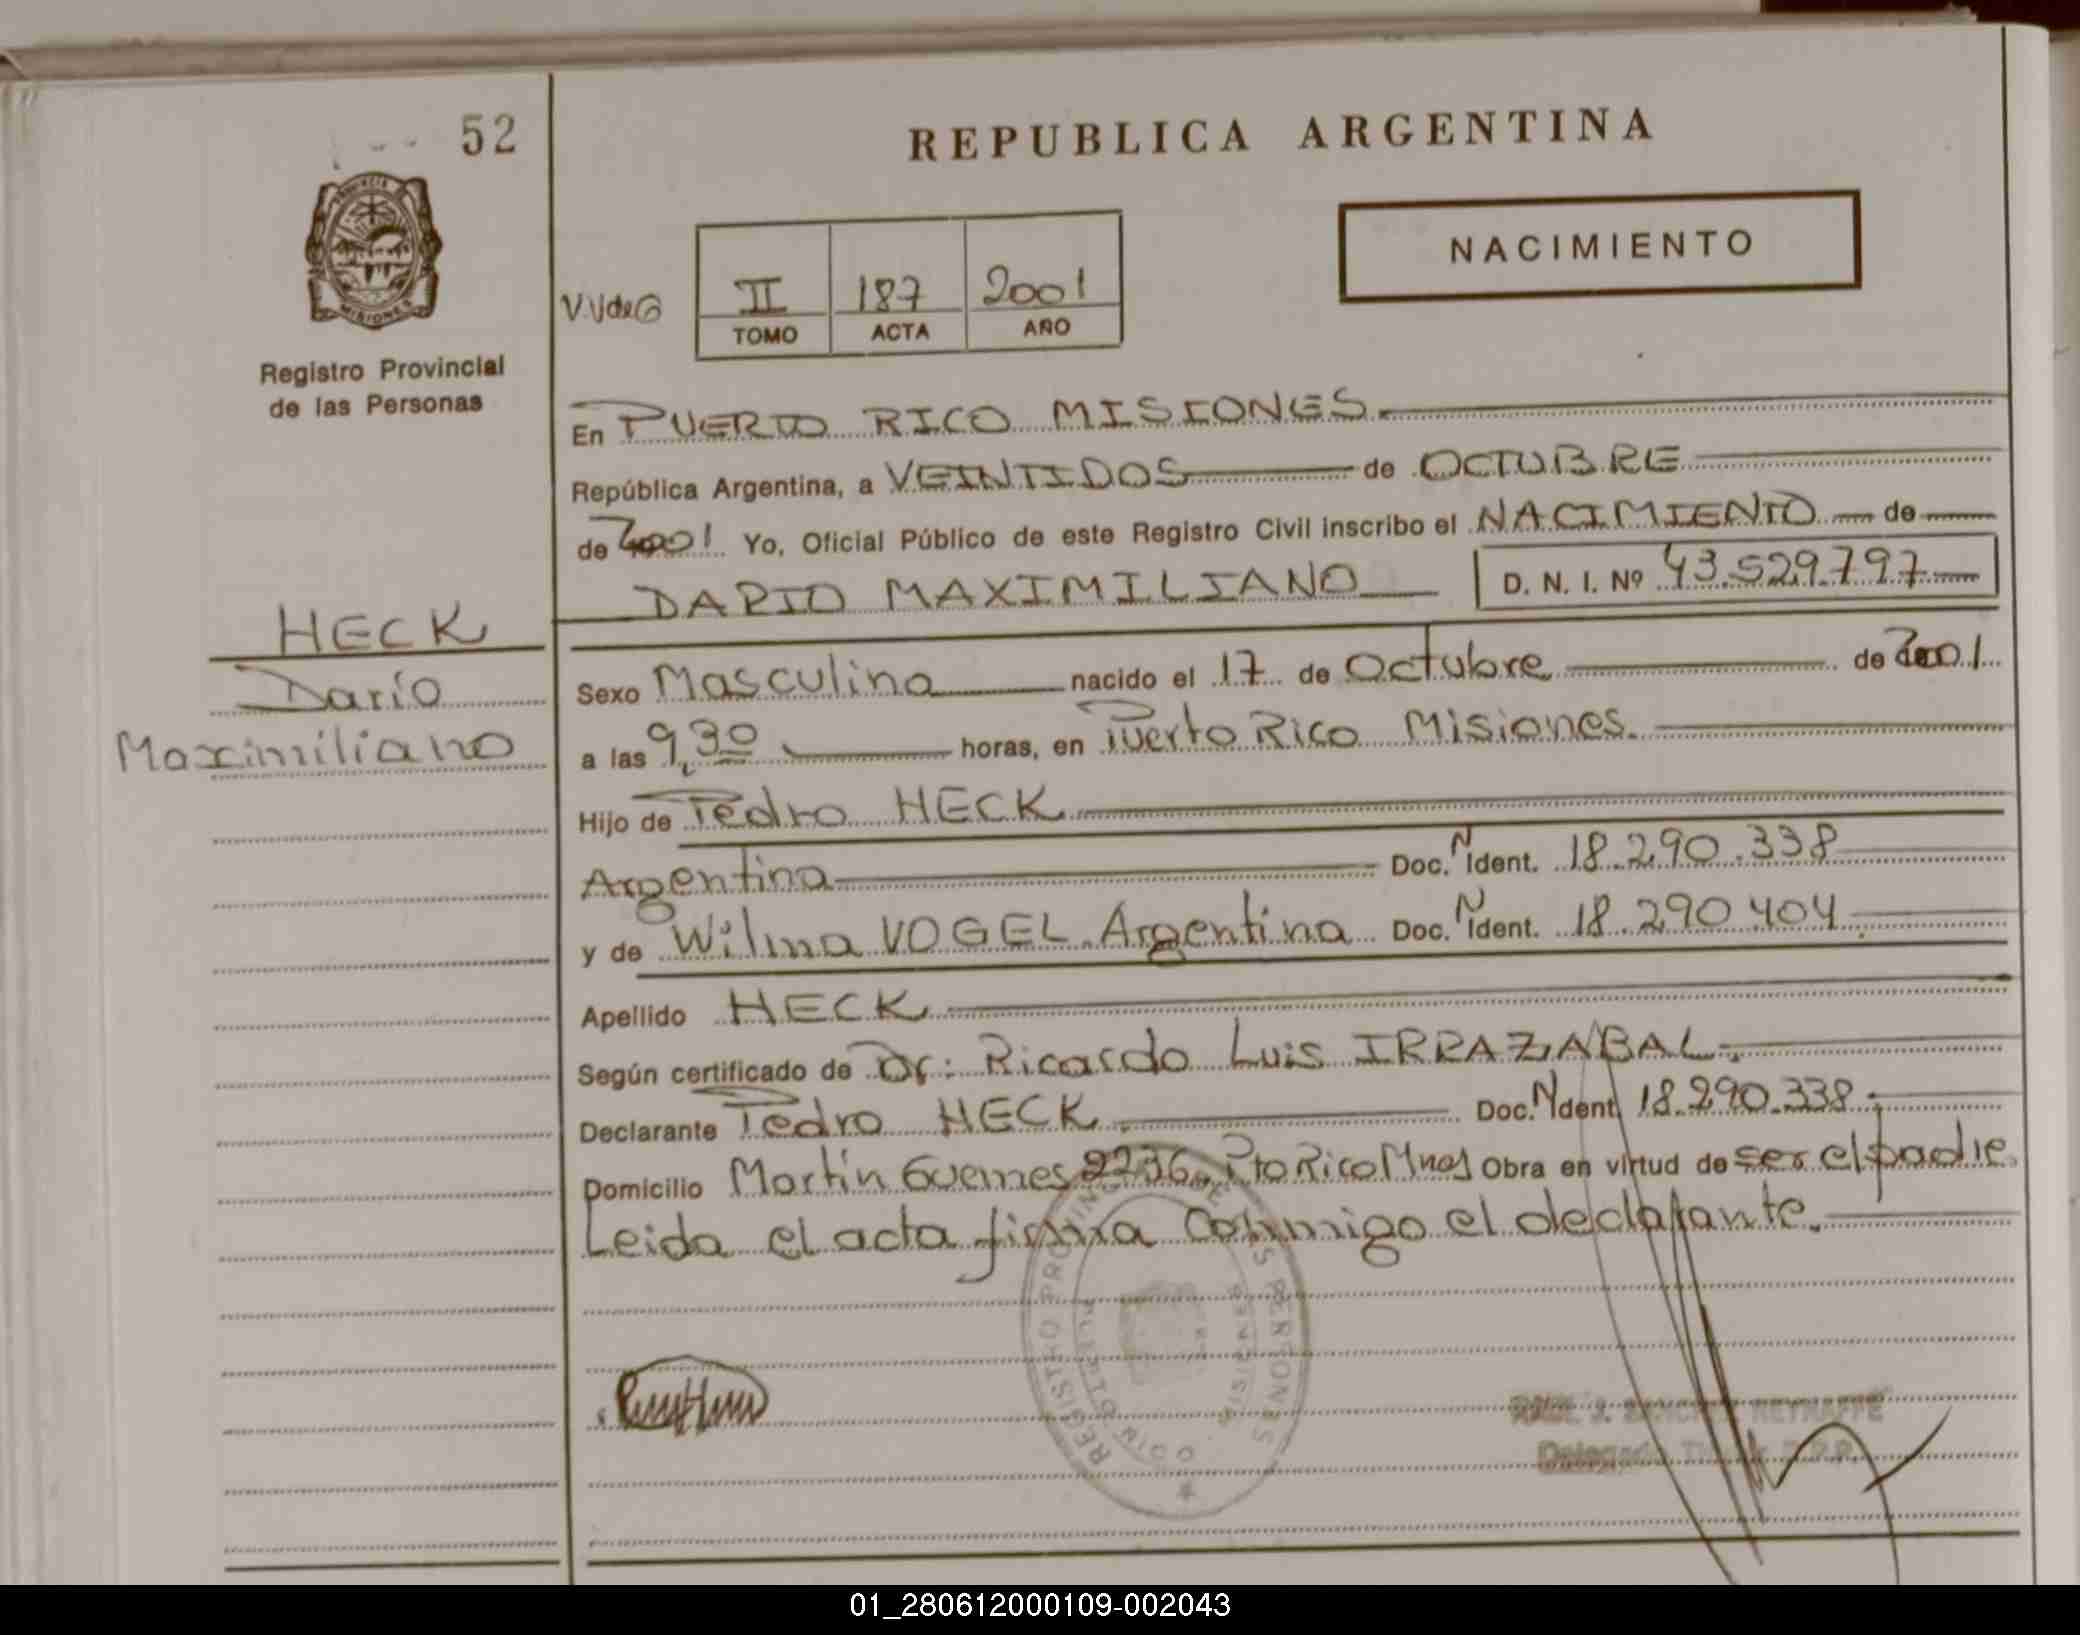 52
REPUBLICA ARGENTINA
NACIMIENTO
PROVINCIA
MISIONES
V.VdeG
II 187 2001
TOMO ACTA AÑO
Registro Provincial
de las Personas
En PUERTO RICO MISIONES.
República Argentina, a VEINTIDOS de OCTUBRE
de 2001 Yo, Oficial Público de este Registro Civil inscribo el NACIMIENTO de
DARIO MAXIMILIANO D. N. I. Nº 43.529.797
HECK
Darío
Maximiliano
Sexo Masculino nacido el 17 de Octubre de 2001
a las 9,30 horas, en Puerto Rico Misiones.
Hijo de Pedro HECK
Argentina Doc. N Ident. 18.290.338
y de Wilma VOGEL Argentina Doc. N Ident. 18.290.404
Apellido HECK
Según certificado de Dr: Ricardo Luis IRRAZABAL.
Declarante Pedro HECK. Doc. N Ident. 18.290.338
Domicilio Martín Guemes 2236, Pto Rico Mnes Obra en virtud de ser el padre.
Leida el acta firma conmigo el declarante.
REGISTRO PROVINCIAL DE LAS PERSONAS
MISIONES
SANCHEZ REYNAFFE
Delegado Titular R.P.P.
01_280612000109-002043